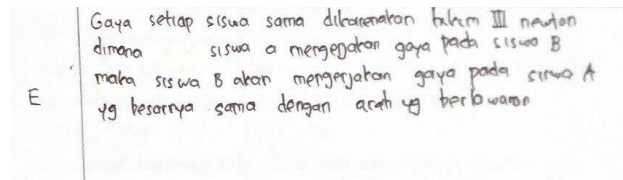 Gaya setiap siswa sama dikarenakan hukum III newton
dimana siswa a mengerjakan gaya pada siswa B
maka siswa B akan mengerjakan gaya pada siswa A
E
yg besarnya sama dengan arah yg berlawanan